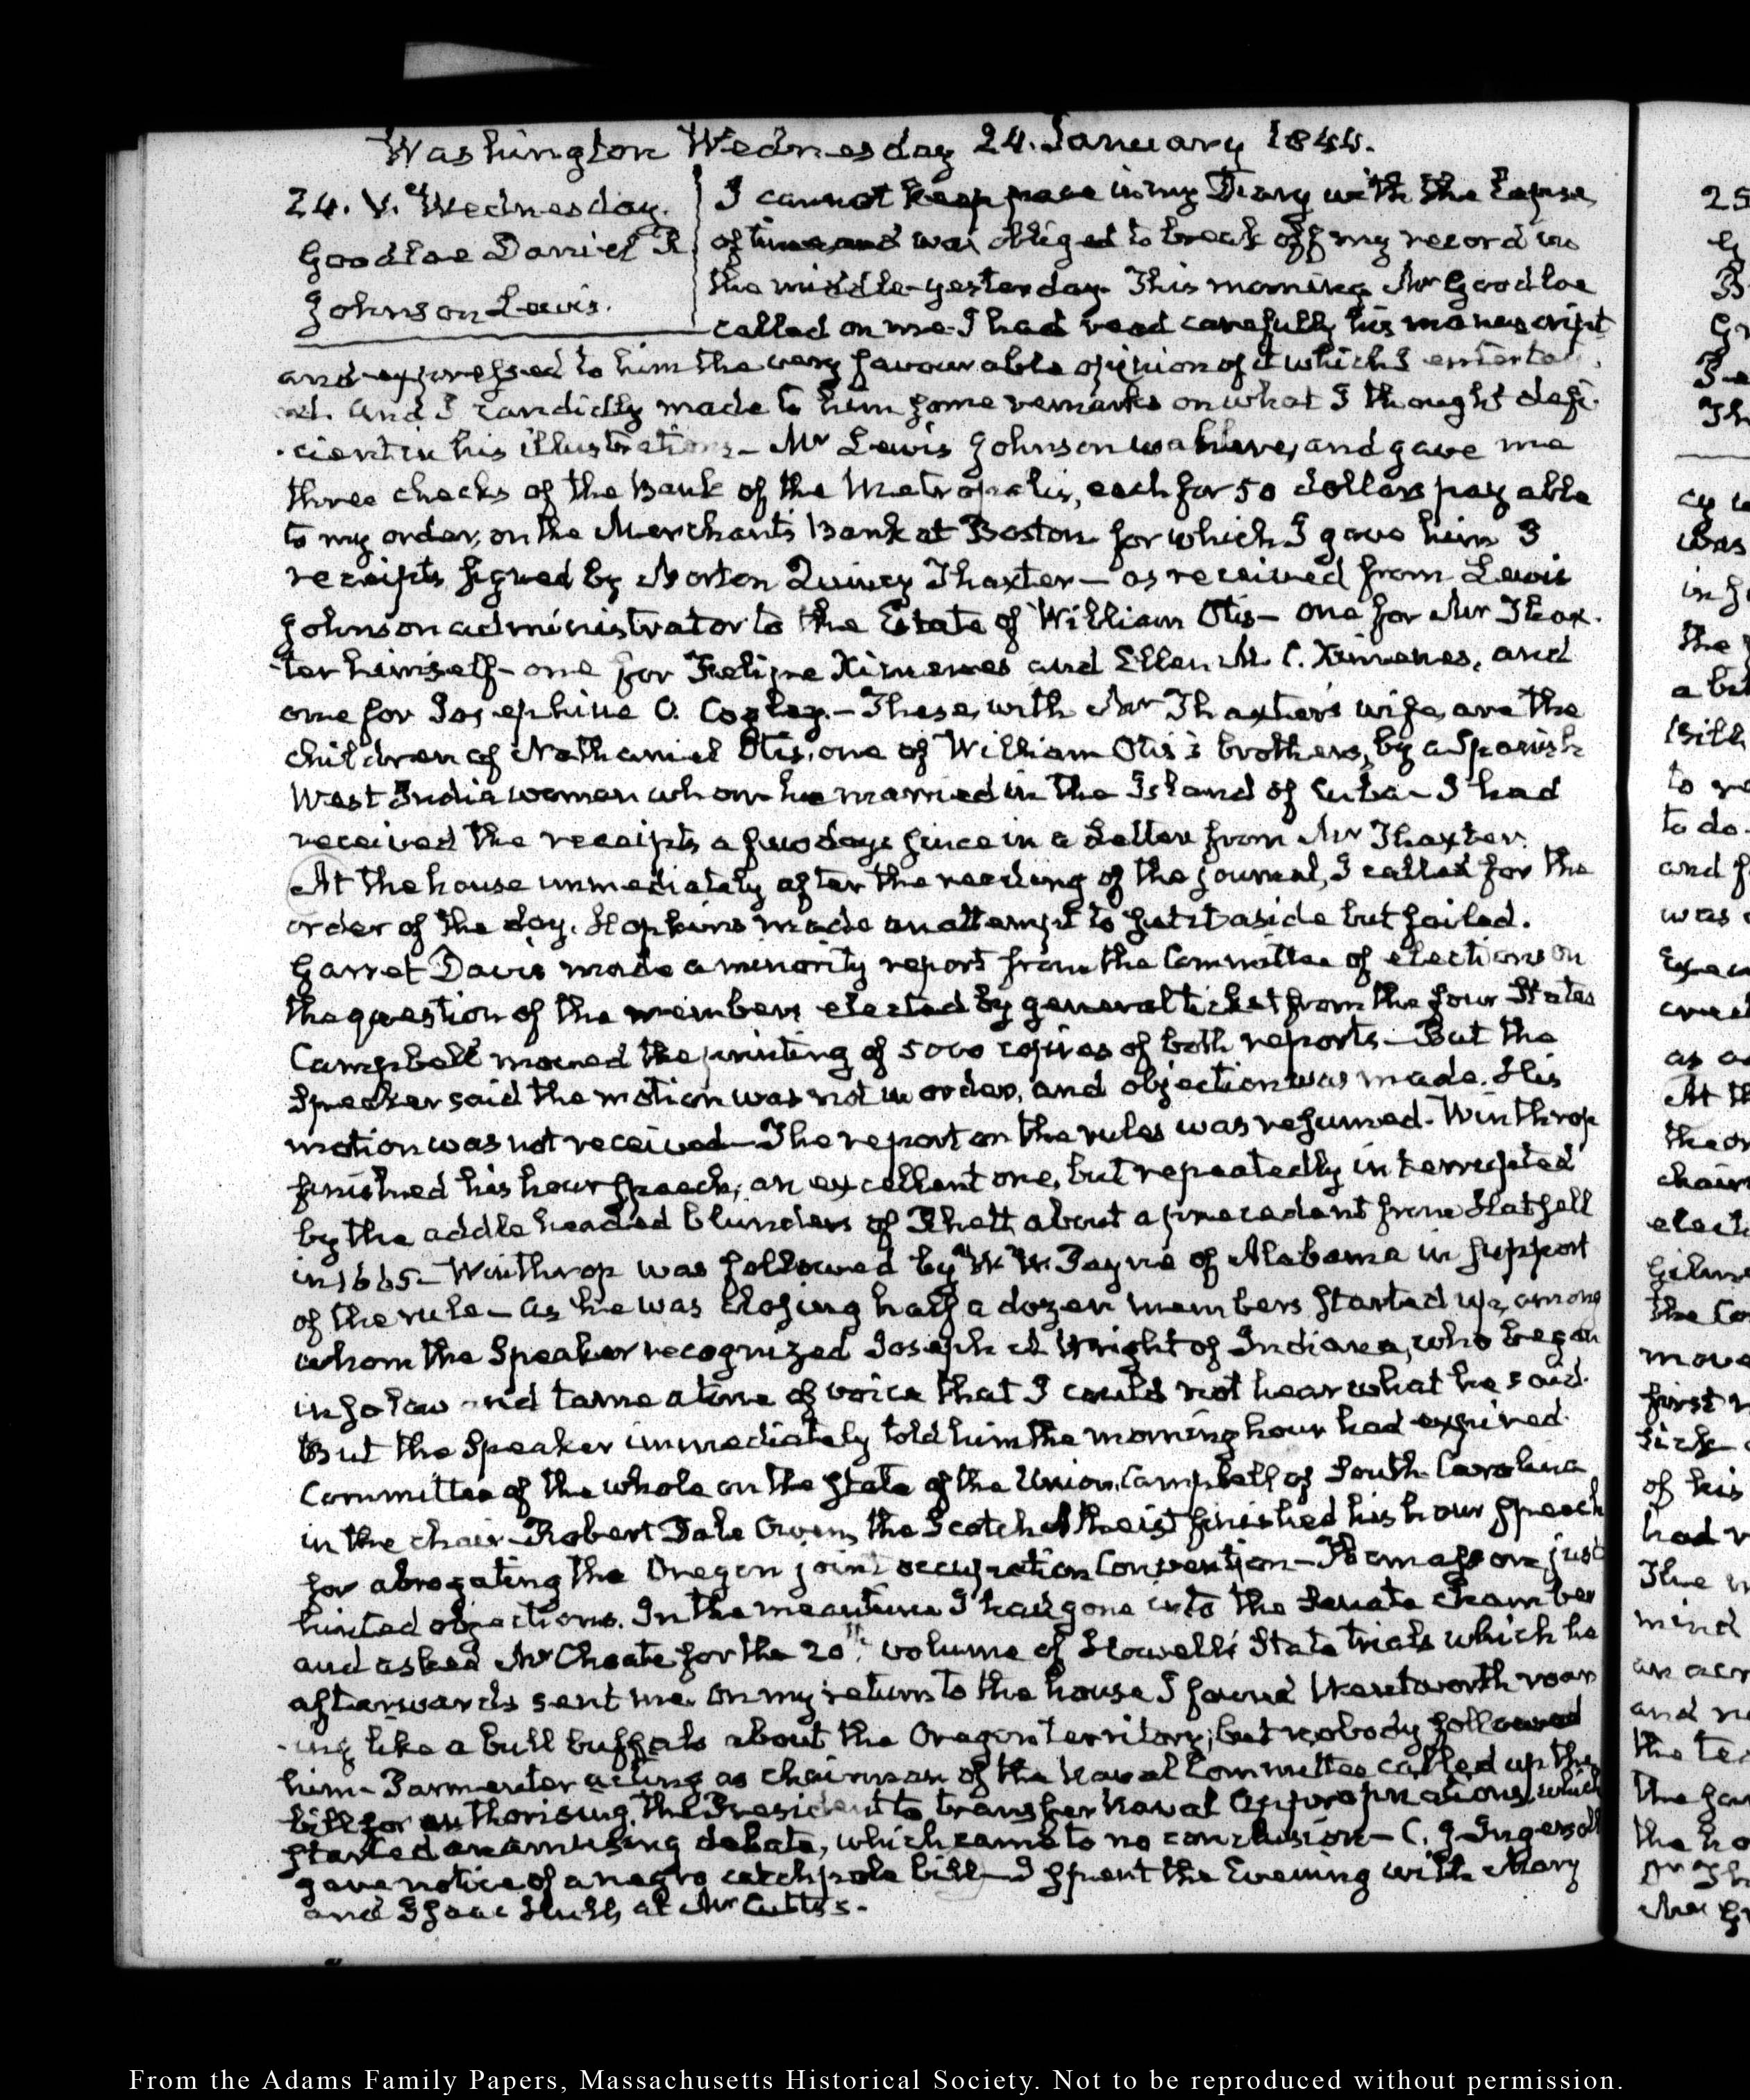 Washington Wednesday 24. January 1844.
24. V. Wednesday.
Goodloe Daniel R
Johnson Lewis.
I cannot keep pace in my Diary with the lapse
of time and was obliged to break off my record in
the middle yesterday. This morning Mr Goodloe
called on me. I had read carefully his manuscript
and expressed to him the very favourable opinion of it which I entertai
ed. and I candidly made to him some remarks on what I thought defi-
-cient in his illustrations — Mr Lewis Johnson was here, and gave me
three checks of the Bank of the Metropolis, each for 50 dollars payable
to my order, on the Merchants Bank at Boston for which I gave him 3
receipts signed by Morton Quincy Thaxter — as received from Lewis
Johnson administrator to the Estate of William Otis — one for Mr Thax-
-ter himself — one for Felipe Ximenes and Ellen M. C. Ximenes, and
one for Josephine O. Cogley. — These, with Mr Thaxter's wife, are the
children of Nathaniel Otis, one of William Otis's brothers, by a Spanish
West India woman whom he married in the Island of Cuba — I had
received the receipts a few days since in a Letter from Mr Thaxter.
At the house immediately after the reading of the journal, I called for the
order of the day. Hopkins made an attempt to put it aside but failed.
Garret Davis made a minority report from the Committee of elections on
the question of the members elected by general ticket from the four States
Campbell moved the printing of 5000 copies of both reports — But the
Speaker said the motion was not in order, and objection was made. His
motion was not received — The report on the rules was resumed. Winthrop
finished his hour speech, an excellent one, but repeatedly interrupted
by the addle headed blunders of Rhett about a precedent from Hatsell
in 1665 — Winthrop was followed by W. W. Payne of Alabama in support
of the rule — as he was closing half a dozen members started up, among
whom the Speaker recognized Joseph A. Wright of Indiana, who began
in so low and tame a tone of voice that I could not hear what he said.
But the Speaker immediately told him the morning hour had expired.
Committee of the whole on the State of the Union, Campbell of South Carolina
in the chair — Robert Dale Owen, the Scotch Atheist finished his hour speech
for abrogating the Oregon joint occupation Convention — just
hinted objections. In the meantime I had gone into the Senate chamber
and asked Mr Choate for the 20th. volume of Howell's State trials which he
afterwards sent me. On my return to the house I found Wentworth roar
-ing like a bull buffalo about the Oregon territory; but nobody followed
him — Parmenter acting as chairman of the Naval Committee called up the
bill for authorising the President to transfer Naval Appropriations, which
started an amusing debate, which came to no conclusion — C. J. Ingersoll
gave notice of a negro catchpole bill — I spent the Evening with Mary
and Isaac Hull, at Mr Cutts's.
25
was
the
to do.
and f
was
as a
At th
chair
elect
the Co
move
first
of his
had r
mind
and
From the Adams Family Papers, Massachusetts Historical Society. Not to be reproduced without permission.